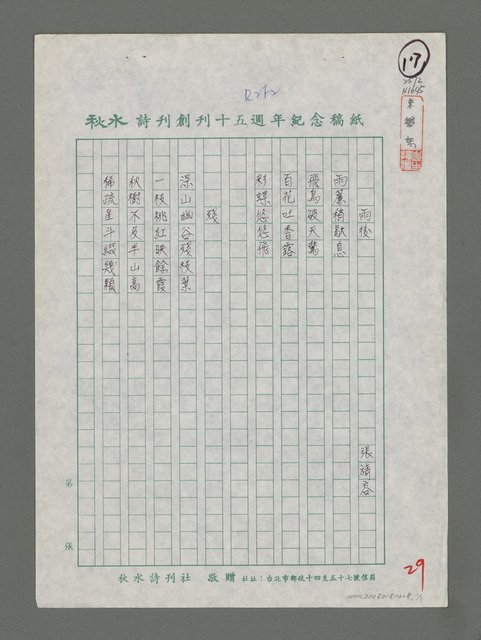 17
R2F2
秋水詩刊創刊十五週年紀念稿紙
雨後
張
雨簾稍歇息
飛鳥破天驚
百花吐香露
彩蝶悠悠飛
殘
深山幽谷殘枝葉
一枝桃紅映餘霞
秋樹不及半山高
稀疏星斗綴幾顆
第
張
29
秋水詩刊社 敬贈 社址：台北市郵政十四支五十七號信箱